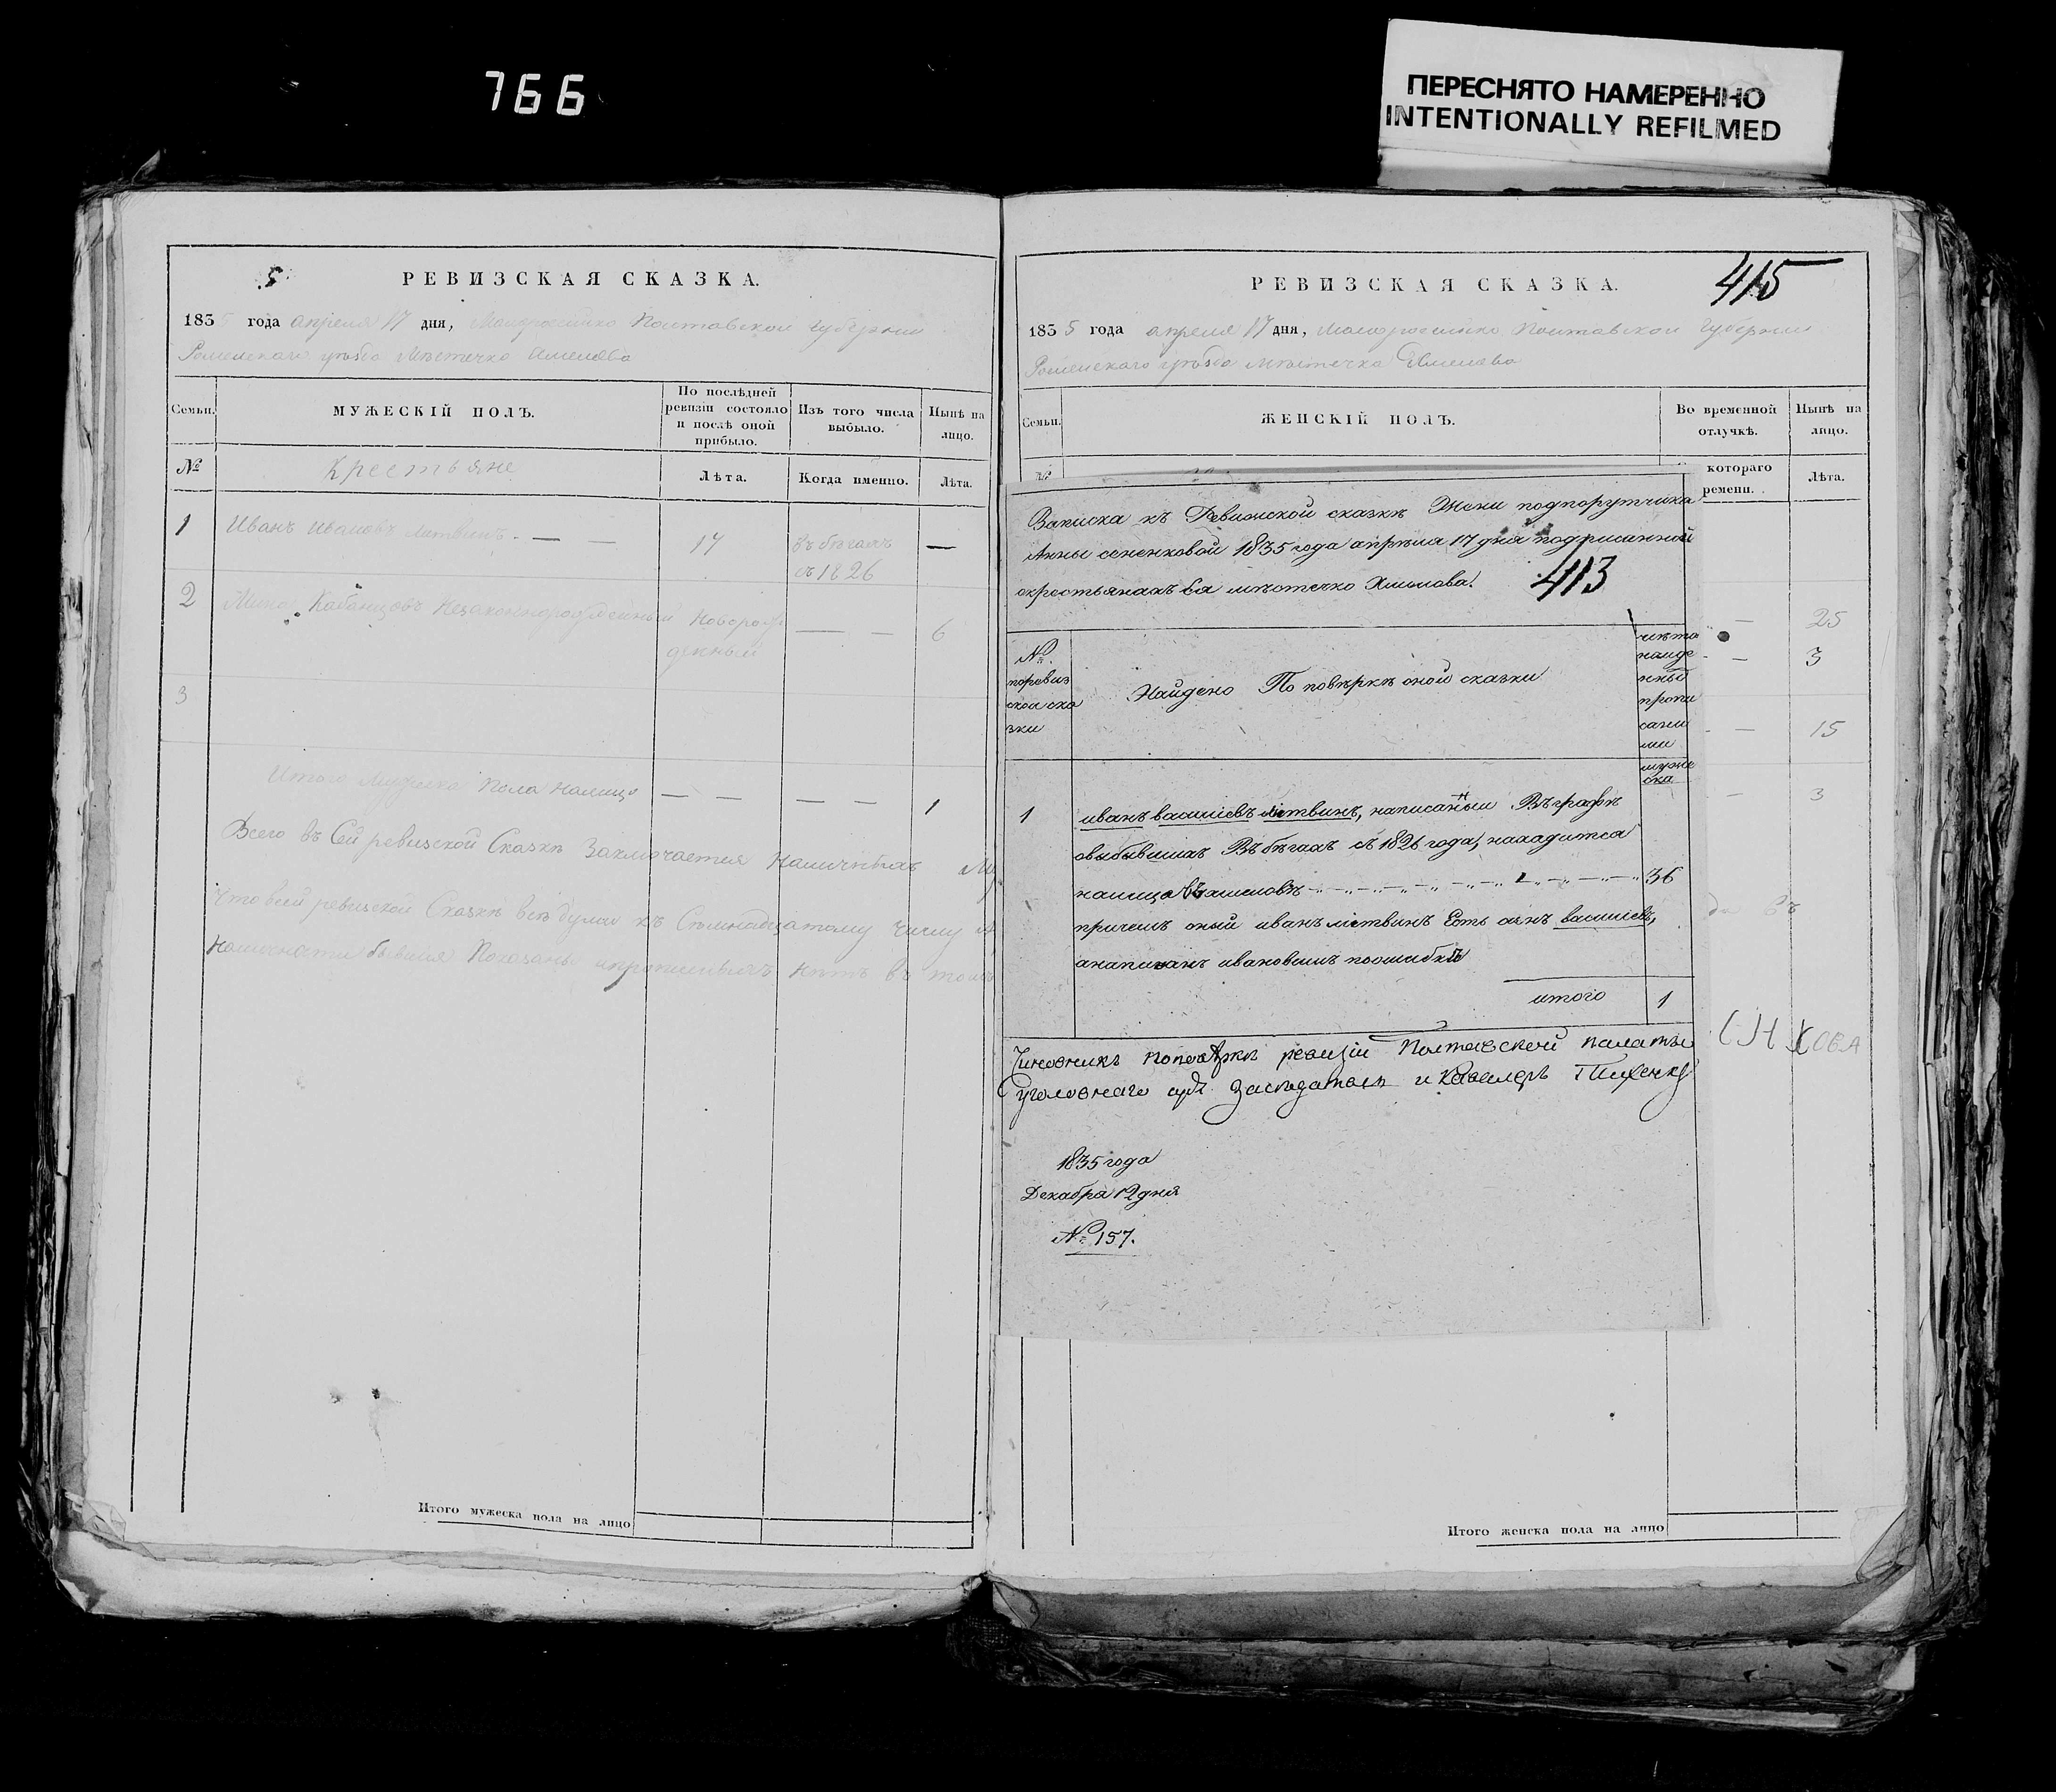 766
ПЕРЕСНЯТО НАМЕРЕННО
INTENTIONALLY REFILMED
5
РЕВИЗСКАЯ СКАЗКА.
1835 года апреля 17 дня, Малоросійско Полтавской Губерніи
Роменскаго уѣзда Мѣстечка Хмелова
Семьи.
МУЖЕСКІЙ ПОЛЪ.
По послѣдней ревизіи состояло и послѣ оной прибыло.
Изъ того числа выбыло.
Нынѣ на лицо.
№
Крестьяне
Лѣта.
Когда именно.
Лѣта.
1 Иванъ Ивановъ Литвинъ. — — 17 въ бѣгахъ —
съ 1826
2 Кабанцовъ Незаконнорожденный Новорож — — 6
денный
3
Итого Мужеска Пола налицо — — — — 1
Всего въ Сей ревизской Сказкѣ Заключается Наличныхъ
Что въ сей ревизской Сказкѣ всѣ души къ Семнадцатому числу
наличности бывшія Показаны ипрописныхъ нѣтъ въ томъ
Итого мужеска пола на лицо
415
РЕВИЗСКАЯ СКАЗКА.
1835 года апреля 17 дня, Малоросійско Полтавской Губерніи
Роменскаго уѣзда Мѣстечка Хмелова
Семьи.
ЖЕНСКІЙ ПОЛЪ.
Во временной отлучкѣ.
Нынѣ на лицо.
№
котораго
ремени.
Лѣта.
— 25
— 3
— 15
— 3
Записка къ Ревизской сказкѣ Жени подпорутчика
Анны сененковой 1835 года апрѣля 17 дня подписанной
окрестьянахъ Ея мѣстечко Хмелова.
413
№.
поревиз
ской ска
зки
Найдено По повѣркѣ оной сказки
лѣта
найде
нный
пропи
сани
ми
муже
ска
1 иванъ василіевъ литвинъ, написанный Въ графѣ
овыбывшихъ Въ бѣгахъ съ 1826 года, находится
налицо Вхмеловѣ 36
причемъ оный иванъ литвинъ Есть сынъ василіевъ,
анаписанъ ивановымъ поошибкѣ
итого 1
Чиновникъ поповѣркѣ ревизіи Полтавской палаты
Уголовнаго суда Засѣдатель и Кавалеръ
1835 года
Декабря 12 дня
№ 157.
Итого женска пола на лицо